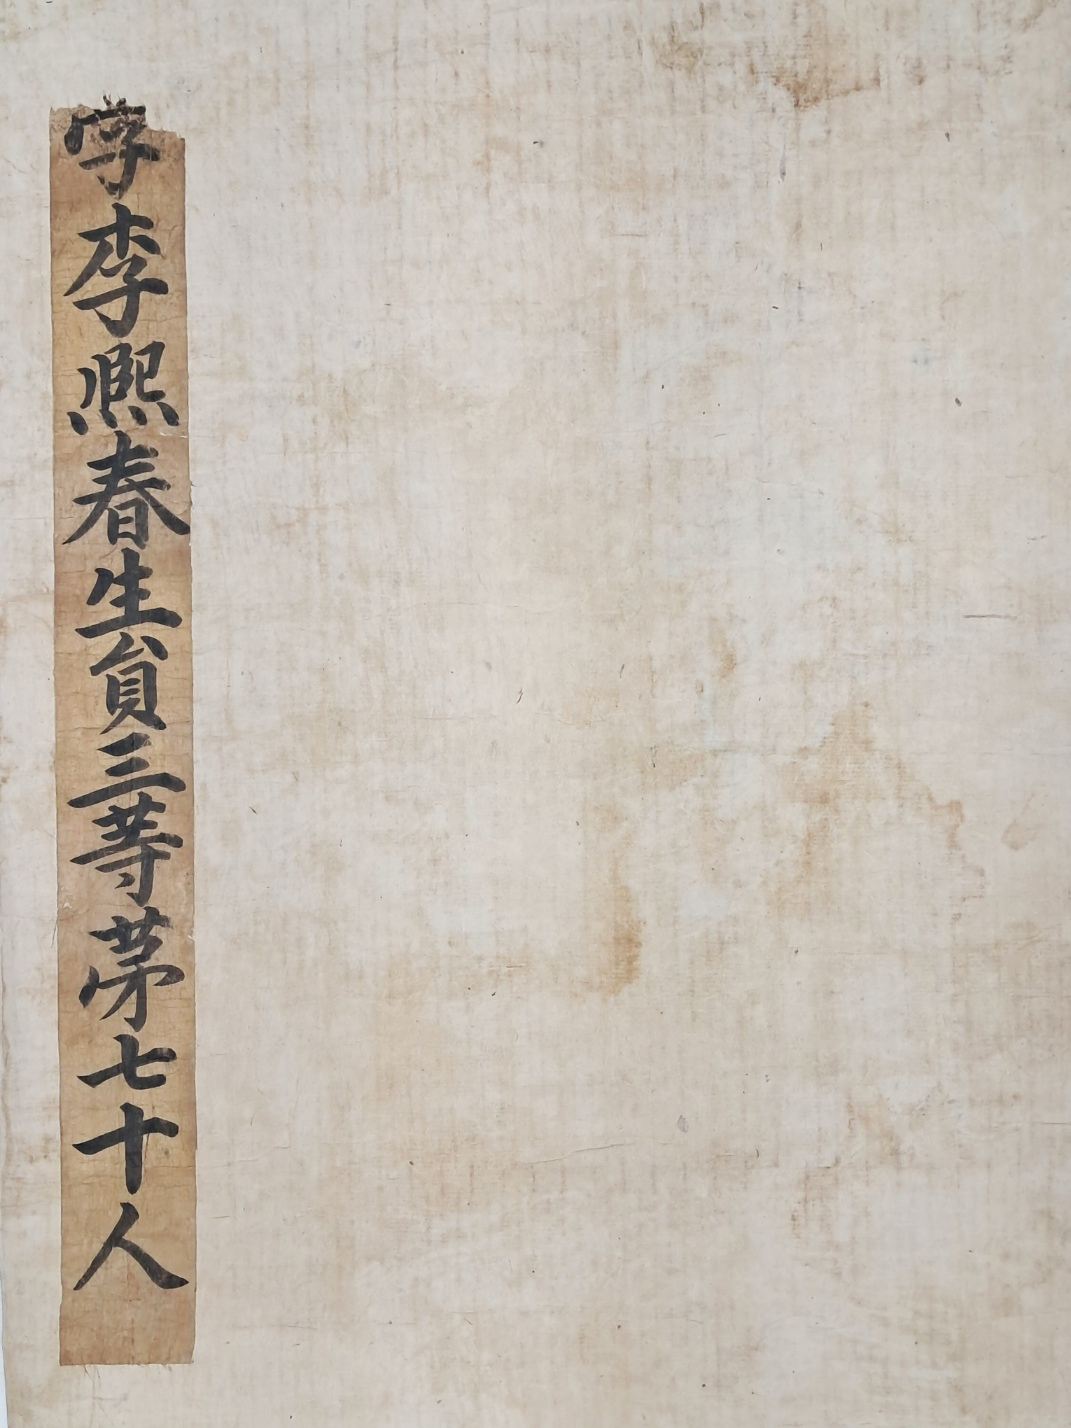 學李熙春生員三等苐七十人